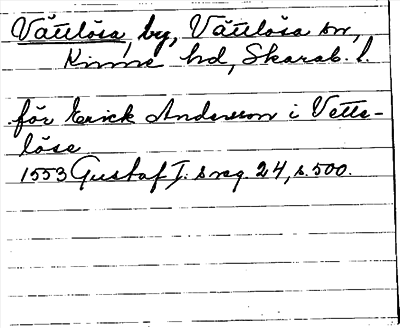 Vättlösa, by, Vättlösa sn,
Kinne hd, Skarab. l.
för Erick Andersson i Vetts-
löse
1553 Gustaf I. s reg 24, s. 500.